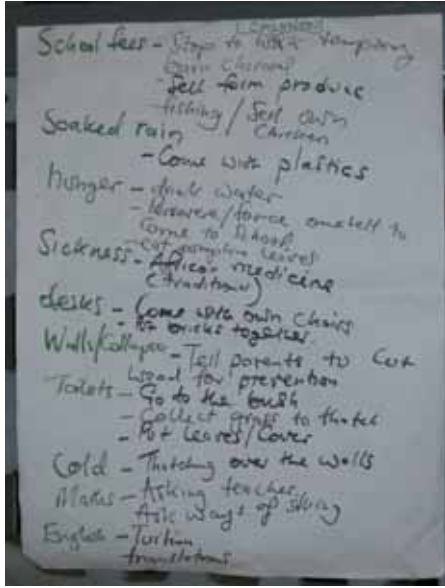 School fees - Stops to work temporary
burn charcoal
- Sell farm produce
- fishing / Sell own
chicken
Soaked rain
- Come with plastics
hunger - drink water
- Persevere/force oneself to
come to school
- eat pumpkin leaves
Sickness - African medicine
(traditional)
desks - Come with own chairs
- Put bricks together
Walls/Collapse - Tell parents to cut
wood for prevention
Toilets - Go to the bush
- Collect grass to thatch
- Put leaves/Cover
Cold - Thatching over the walls
- Asking teacher
Ask ways of
English - Tuition
translations